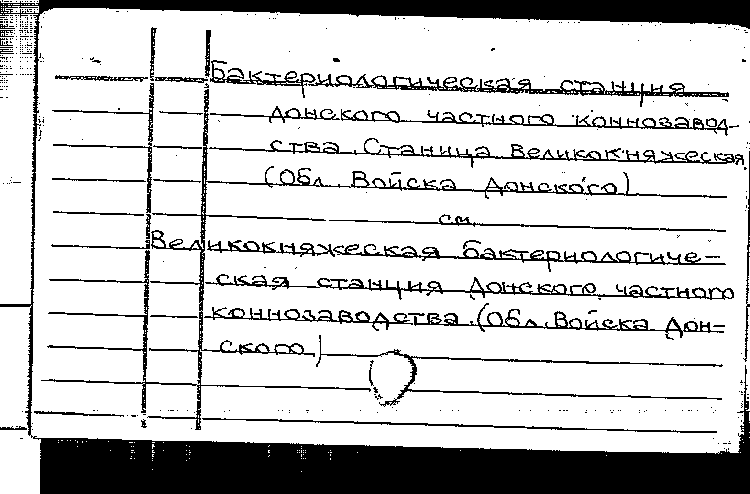 Бактериологическая станция
донского частного коннозавод-
ства. Станица Великокняжеская
(Обл. Войска Донского)
см.
Великокняжеская бактериологиче-
ская станция Донского частного
коннозаводства. (Обл. Войска Дон=
ского)